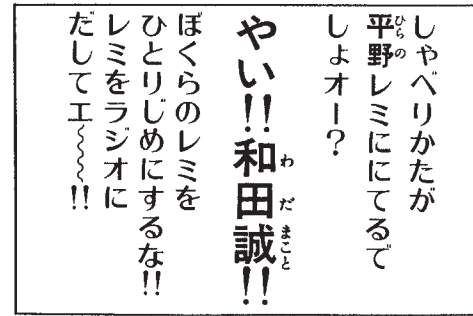 しゃべりかたが
平野レミににてるで
しょオー?
やい!!和田誠!!
ぼくらのレミを
ひとりじめにするな!!
レミをラジオに
だしてエ〜〜〜!!